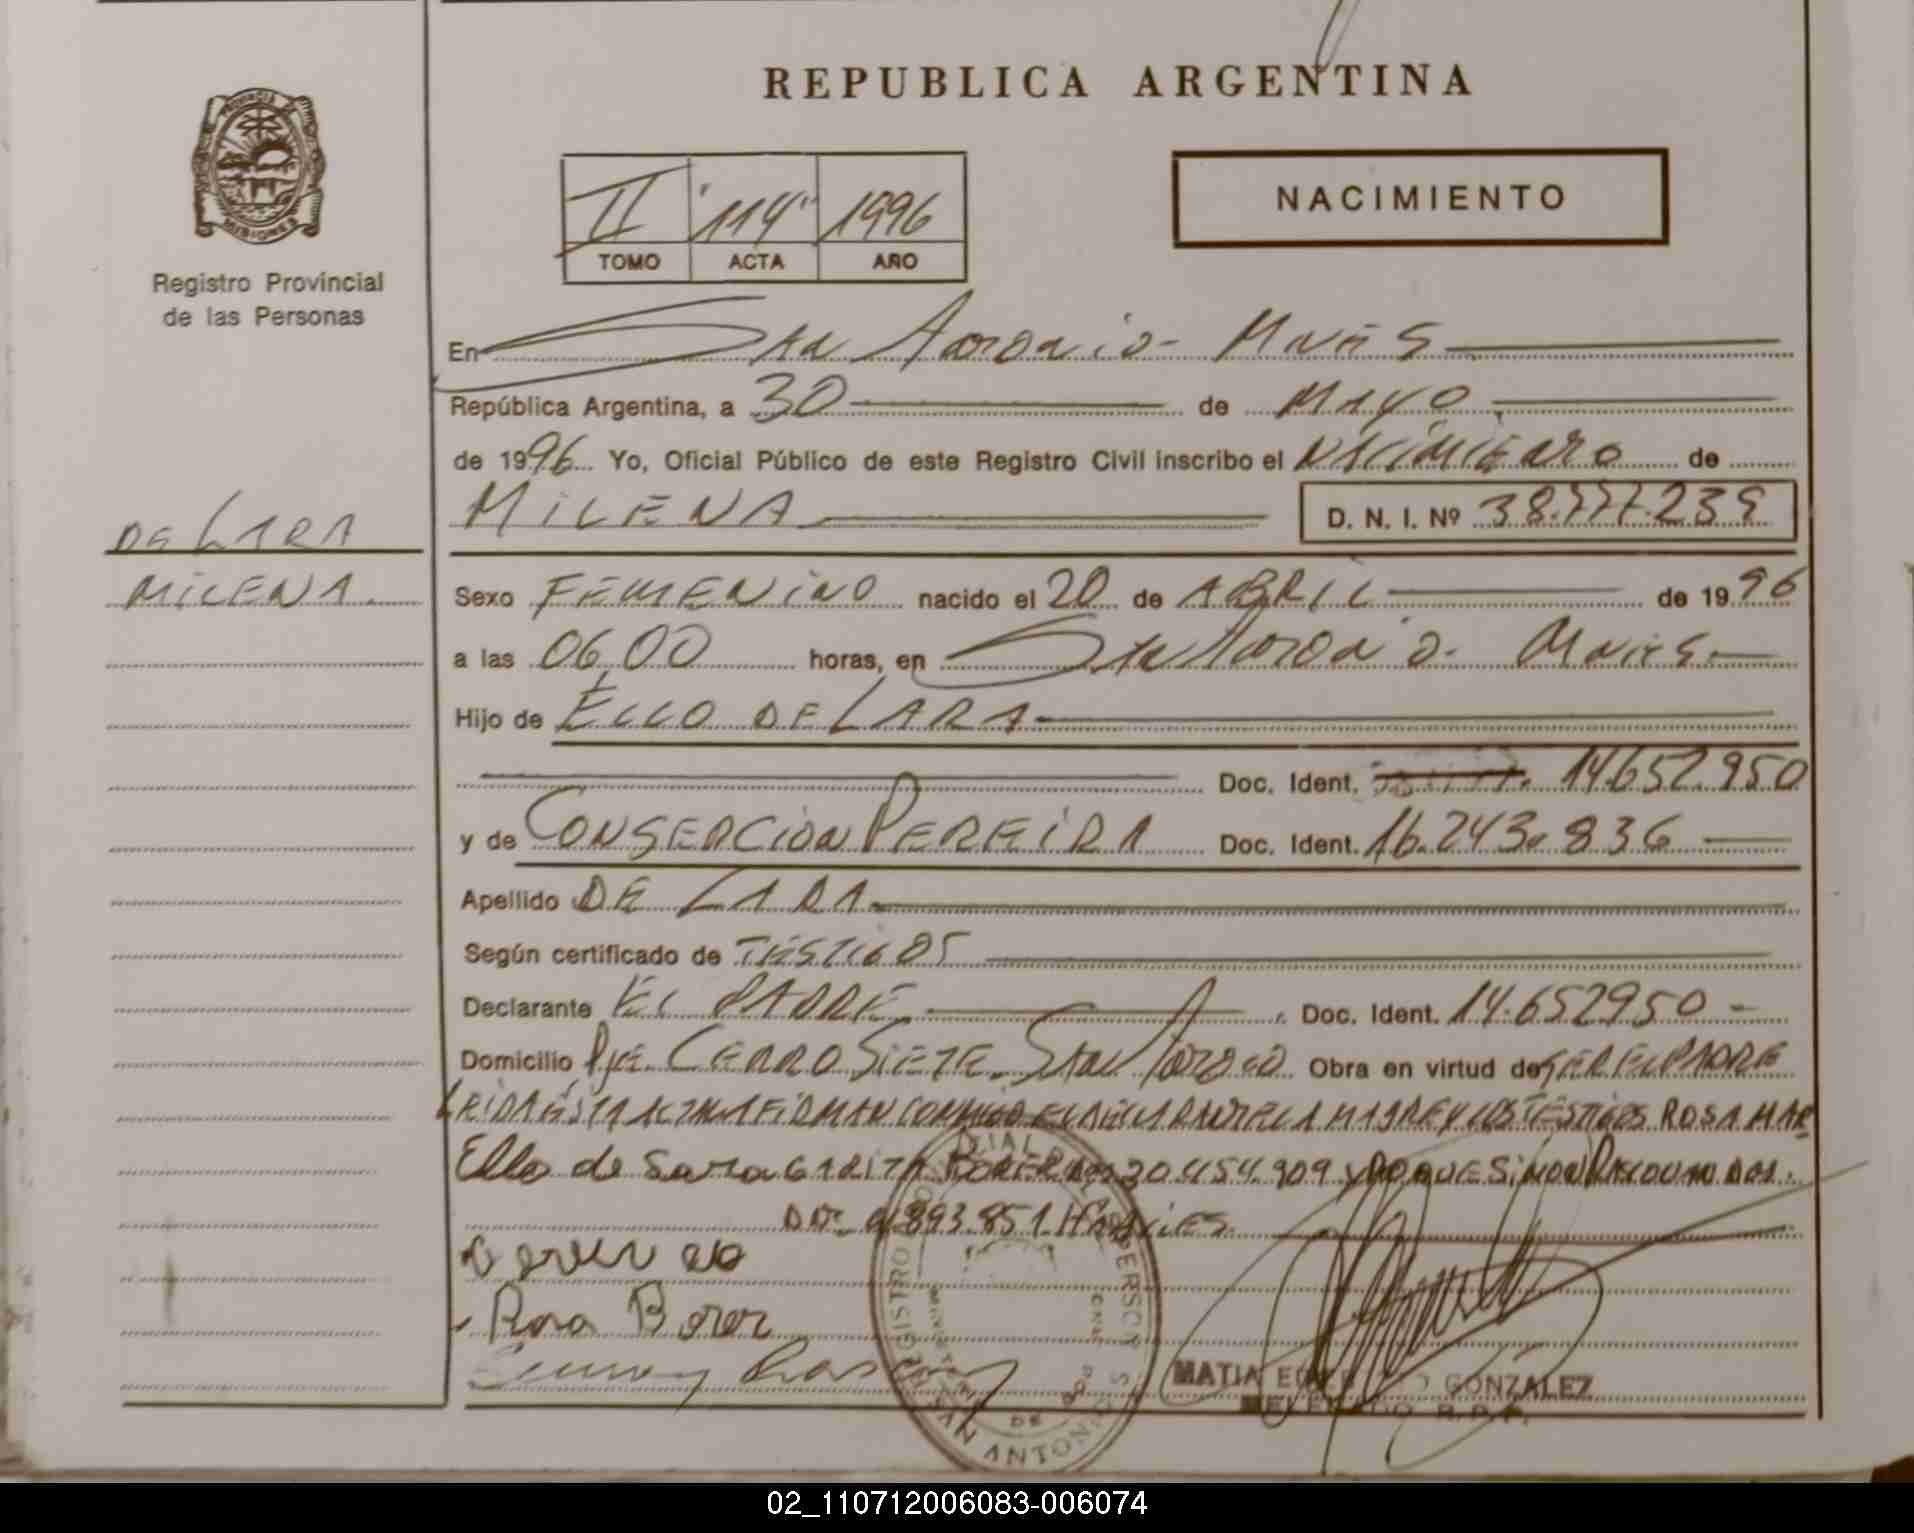 REPUBLICA ARGENTINA
PROVINCIA
MISIONES
Registro Provincial
de las Personas
II "114" 1996
TOMO ACTA AÑO
NACIMIENTO
En San Antonio - Mnes
República Argentina, a 30 de MAYO
de 1996 Yo, Oficial Público de este Registro Civil inscribo el NACIMIENTO de
MILENA D. N. I. Nº 38.777.239
DE LARA
MILENA.
Sexo FEMENINO nacido el 20 de ABRIL de 1996
a las 06,00 horas, en San Antonio - Mnes
Hijo de ELLO DE LARA
Doc. Ident. 14.652.950
y de CONSERCION PEREIRA Doc. Ident. 16.243.836
Apellido DE LARA
Según certificado de TESTIGOS
Declarante EL PADRE Doc. Ident. 14.652950 -
Domicilio Pje. CERRO SIETE. San Antonio Obra en virtud de SER EL PADRE
LEIDA ESTA ACTA LA FIRMAN CONMIGO EL DECLARANTE LA MADRE Y LOS TESTIGOS ROSA MAR-
Ello de Lara GARITA BORER 20.454.909 y ROQUE SIMON
893.851
Rosa Borer
REGISTRO PERSO
SAN ANTONIO
MATIA GONZALEZ
DELEGADO R.P.P.
02_110712006083-006074